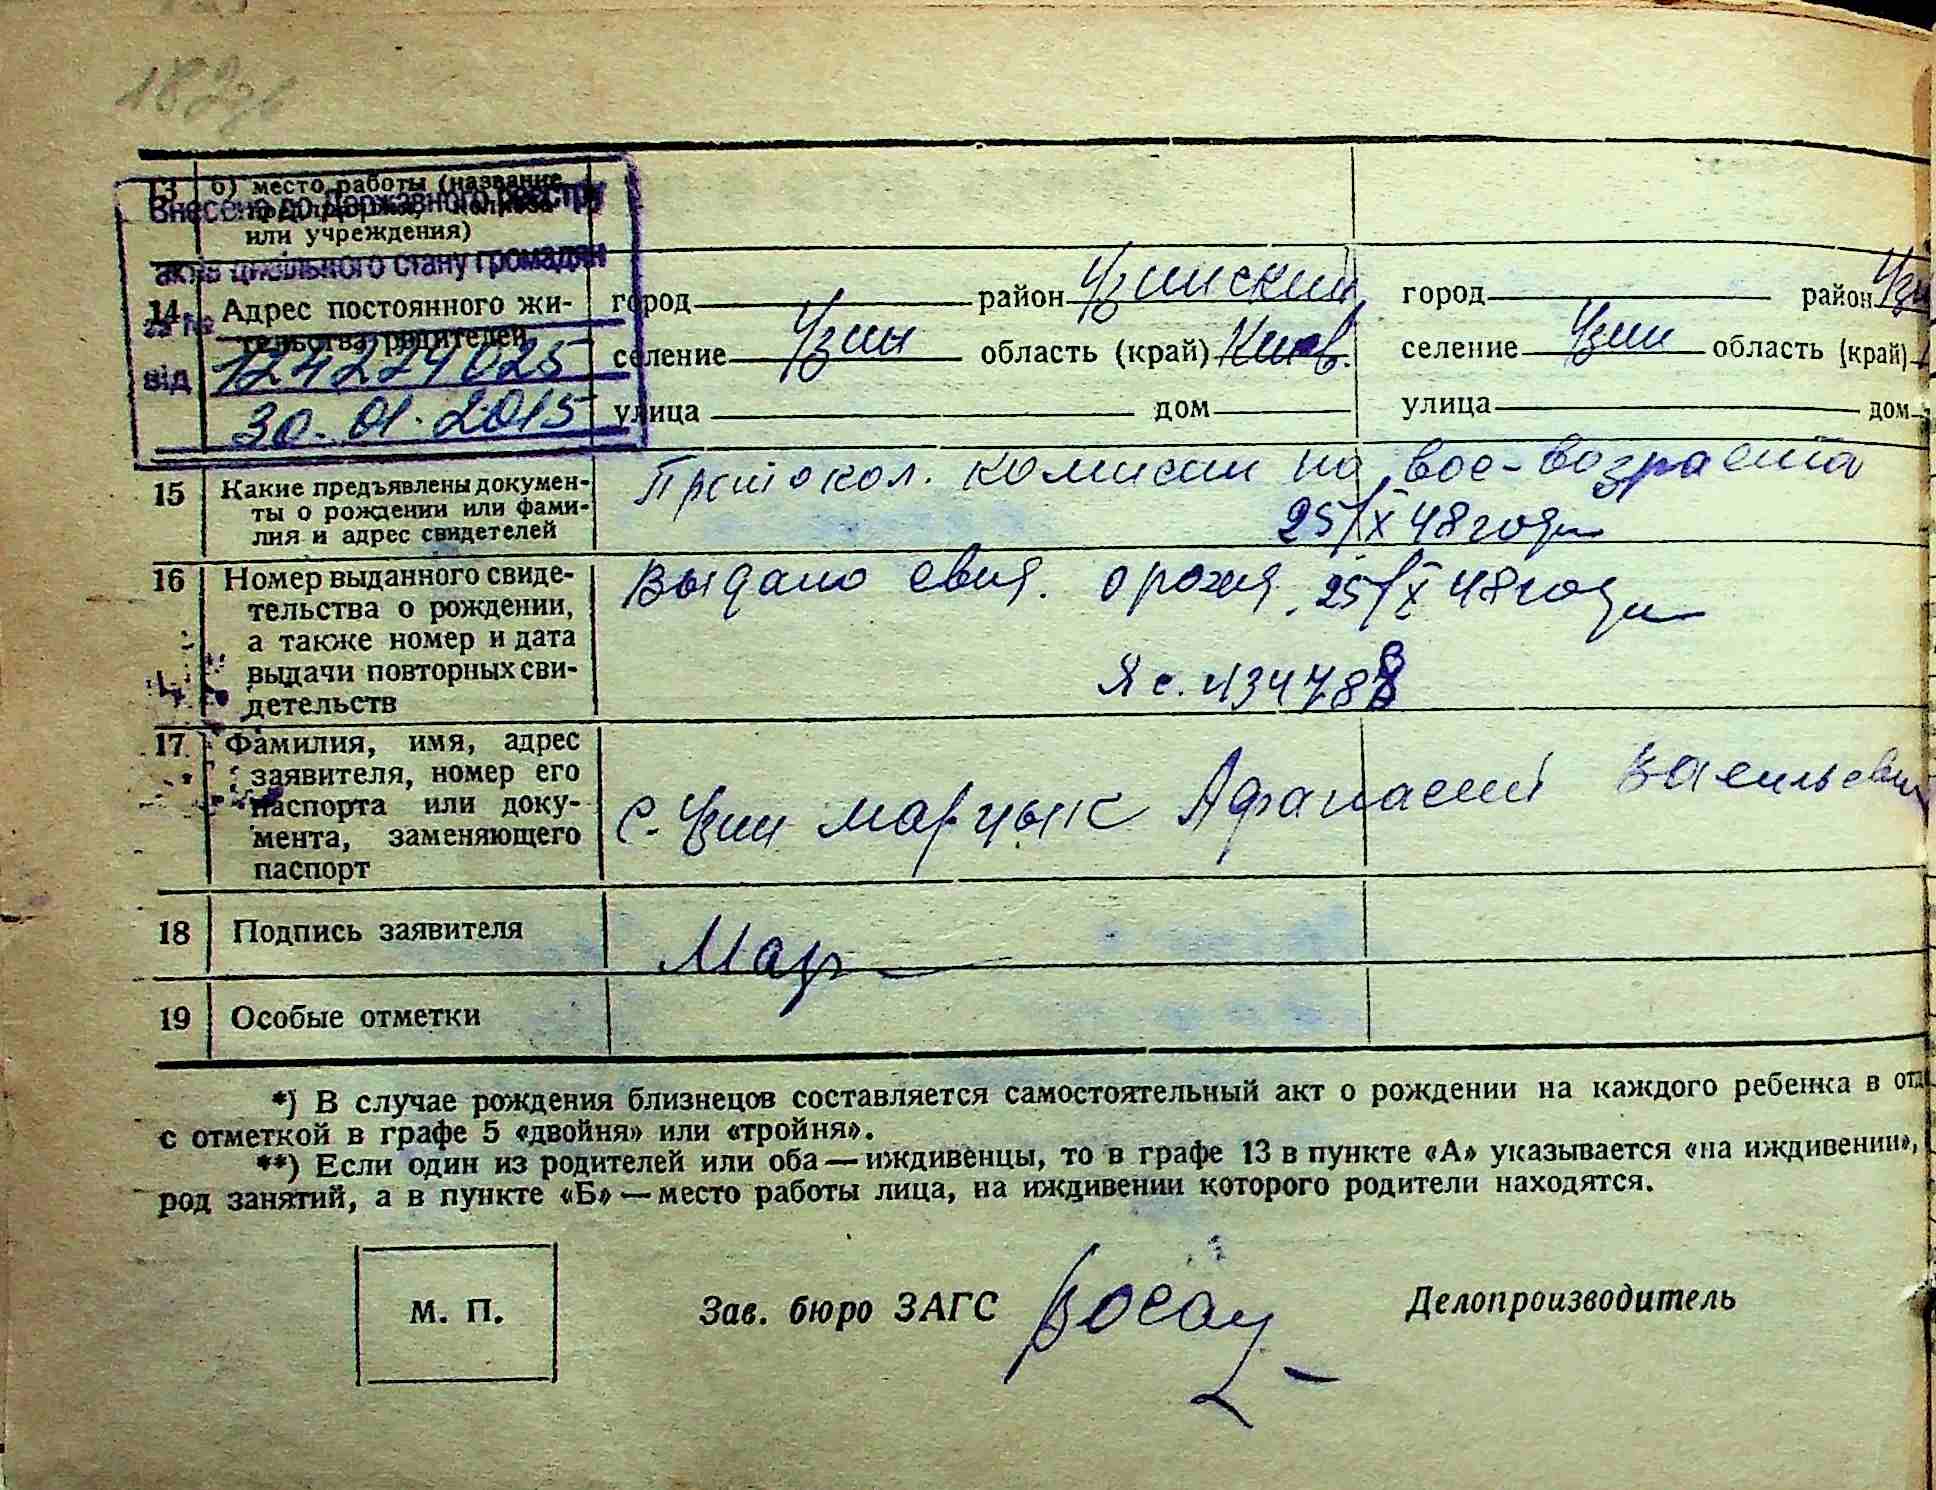 13 б) место работы (название
Внесено до Державного реєстру
или учреждения)
актів цивільного стану громадян
14 Адрес постоянного жи- город район Узинский город район Узи
за №
тельства родителей
селение Узин область (край) Киев. селение Узин область (край)
124224025
від
30.01.2015
улица дом улица дом
15 Какие предъявлены докумен-
ты о рождении или фами-
лия и адрес свидетелей
Протокол. комисии по вос-возраста
25/X 48 года
16 Номер выданного свиде-
тельства о рождении,
а также номер и дата
выдачи повторных сви-
детельств
Выдано свид. о рожд. 25/X 48 года
17 Фамилия, имя, адрес
заявителя, номер его
паспорта или доку-
мента, заменяющего
паспорт
с. Узин Марцык Афанасий Васильевич
18 Подпись заявителя
Мар
19 Особые отметки
*) В случае рождения близнецов составляется самостоятельный акт о рождении на каждого ребенка в отд
с отметкой в графе 5 «двойня» или «тройня».
**) Если один из родителей или оба—иждивенцы, то в графе 13 в пункте «А» указывается «на иждивении»,
род занятий, а в пункте «Б»—место работы лица, на иждивении которого родители находятся.
М. П. Зав. бюро ЗАГС Делопроизводитель